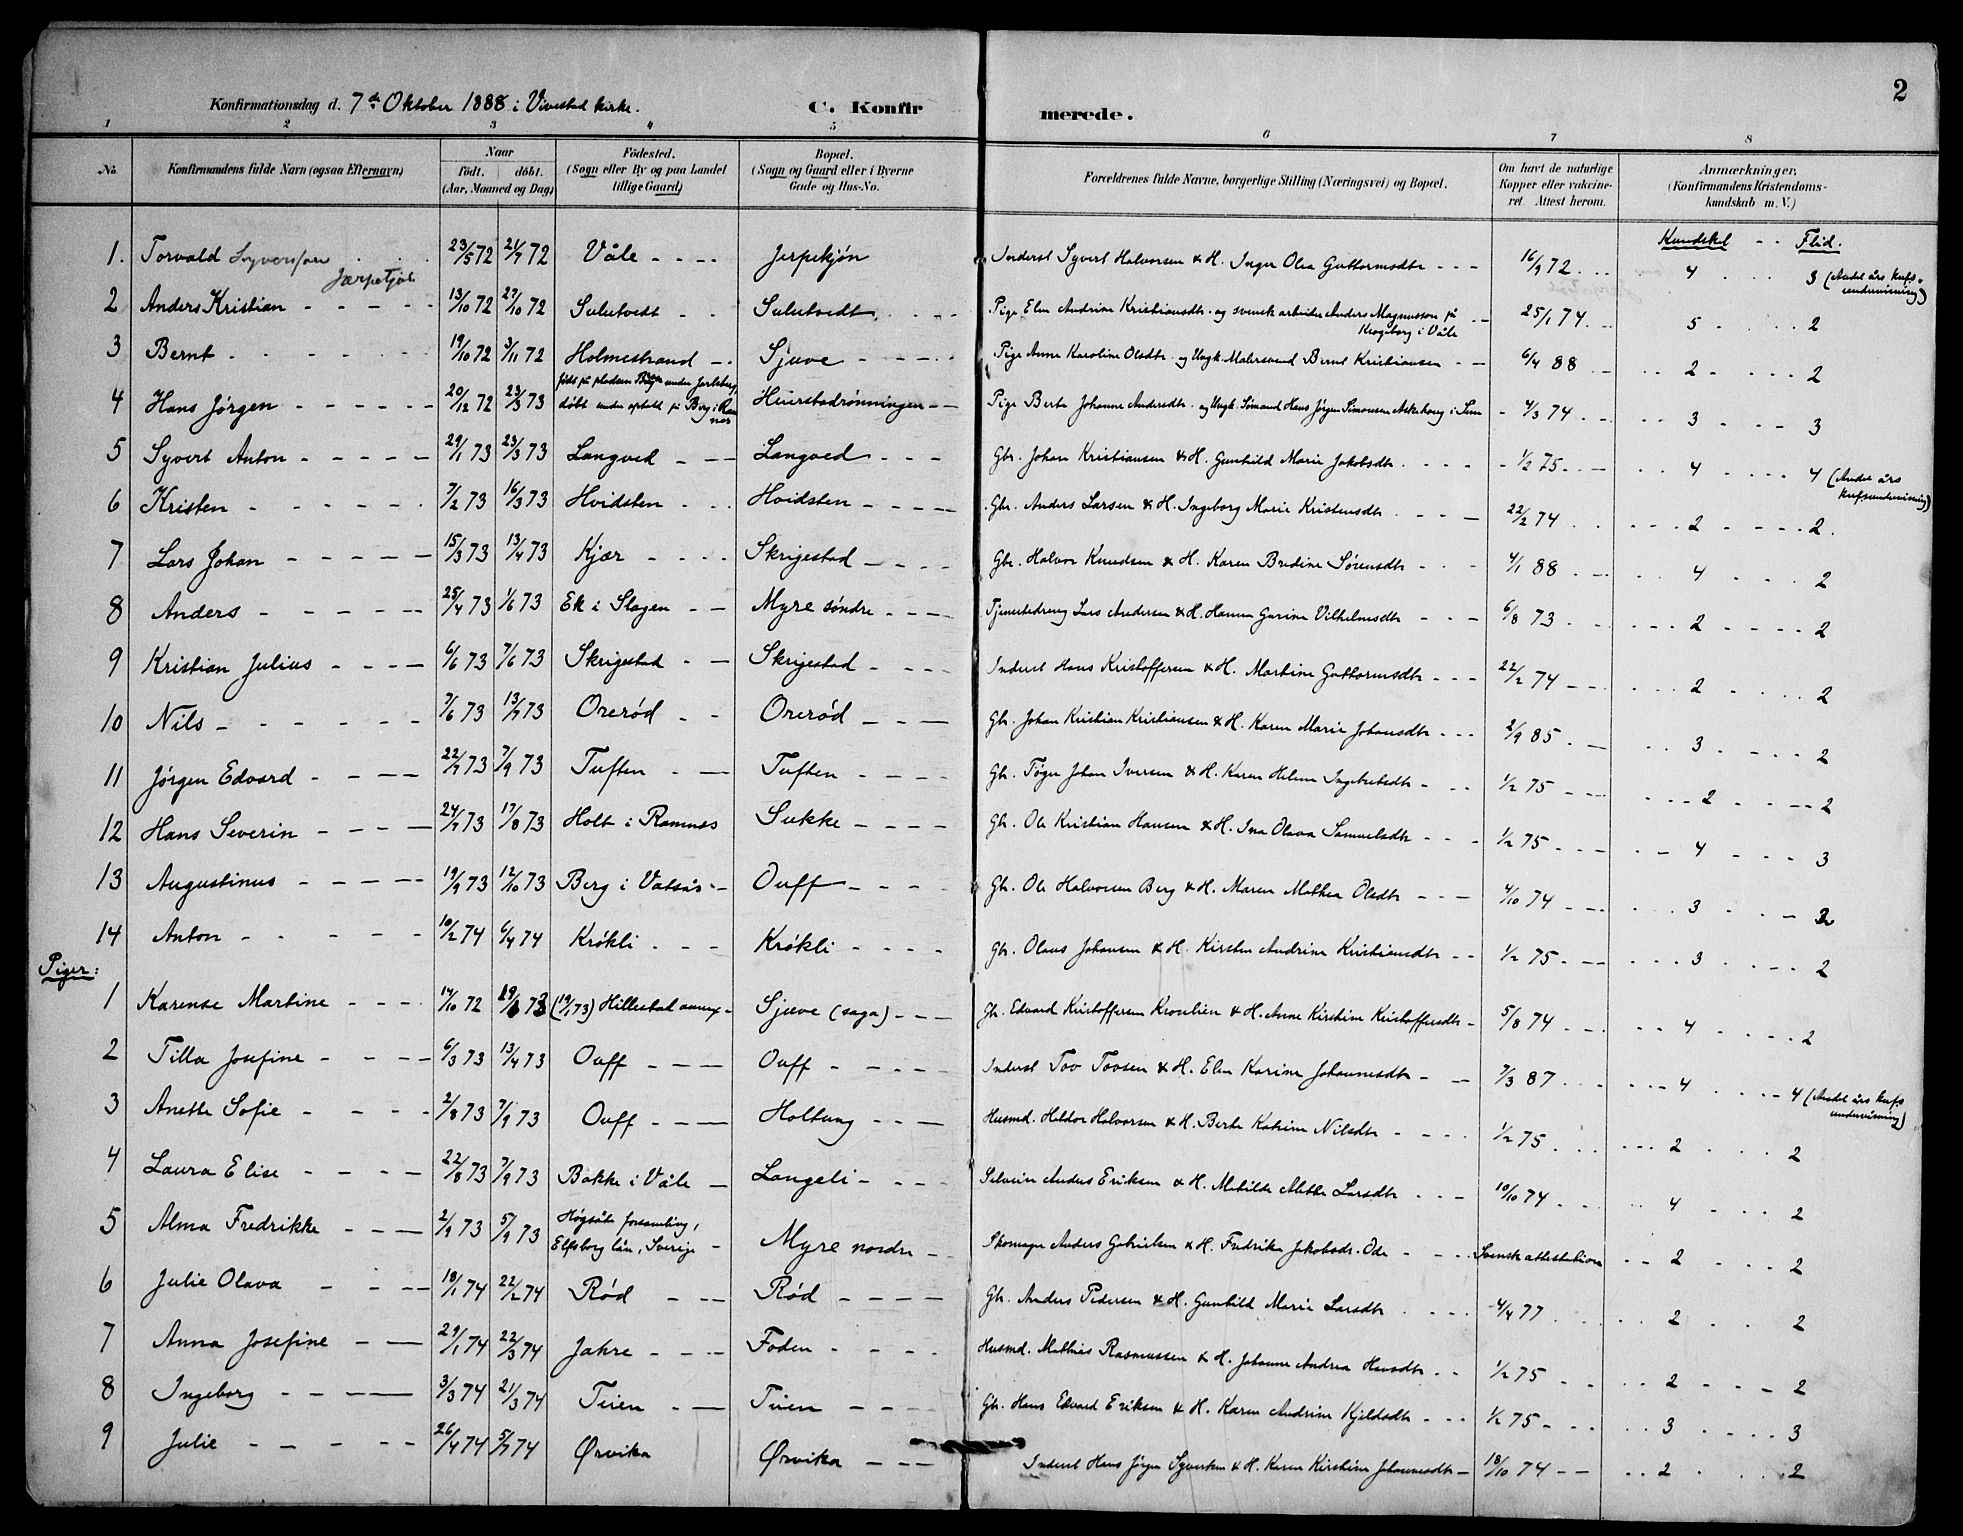 2
Konfirmationsdag d. 7de Oktober 1888 i Vivestad kirke. C. Konfirmerede.
1 2 3 4 5 6 7 8
No. Konfirmandens fulde Navn (ogsaa Efternavn) Naar Födt. döbt. (Aar, Maaned og Dag) Födested. (Sogn eller By og paa Landet tillige Gaard) Bopæl. (Sogn og Gaard eller i Byerne Gade og Hus-No. Forældrenes fulde Navne, borgerlige Stilling (Næringsvei) og Bopæl. Om havt de naturlige Kopper eller vakcineret. Attest herom. Anmærkninger. (Konfirmandens Kristendomskundskab m. V.)
Kundskab - - Flid.
1. Torvald Syversen Jarpetjøn 23/5 72 21/7 72 Våle Jerpekjøn Inderst Syvert Halvorsen & H. Inger Olea Guttormsdtr 16/9 72 4 3 (Andet års kufsundervisning)
2 Anders Kristian 13/10 72 27/10 72 Sulutvedt Sulutvedt Pige Elen Andrine Kristiansdtr. og svensk arbeider Anders Magnusson på Krogeborg i Våle 25/1 74 5 2
3 Bernt 19/10 72 3/11 72 Holmestrand Sjuve Pige Anne Karoline Olsdtr. og Ungk. Malersvend Bernt Kristiansen 6/4 88 2 2
4 Hans Jørgen 20/12 72 23/3 73 født på pladsen under Jarlsberg, døbt under ophold på Berg i Ramnes Huerstadrønningen Pige Berte Johanne Andersdtr. og Ungk. Sømand Hans Jørgen Simonsen Askehaug i Sem 4/3 74 3 3
5 Syvert Anton 29/1 73 23/3 73 Langved Langved Gbr. Johan Kristiansen & H. Gunhild Marie Jakobsdtr. 1/2 75 4 4 (Andet års kufsundervisning)
6 Kristen 7/2 73 16/3 73 Hvidsten Hvidsten Gbr. Anders Larsen & H. Ingeborg Marie Kristensdtr. 22/2 74 2 2.
7 Lars Johan 15/3 73 13/4 73 Kjær Skrigestad Gbr. Halvor Knudsen & H. Karen Bredine Sørensdtr 4/1 88 4 2
8 Anders 25/4 73 1/6 73 Ek i Slagen Myre søndre Tjenestedreng Lars Andersen & H. Hanna Gurine Vilhelmsdtr 6/8 73 2 2
9 Kristian Julius 6/6 73 7/6 73 Skrigestad Skrigestad Inderst Hans Kristoffersen & H. Martine Guttormsdtr 22/2 74 2 2
10 Nils 7/6 73 13/7 73 Orerød Orerød Gbr. Johan Kristian Kristiansen & H. Karen Marie Johansdtr 2/9 85 3 2
11 Jørgen Edvard 22/7 73 7/9 73 Tuften Tuften Gbr. Tøger Johan Iversen & H. Karen Helene Ingebretsdtr 1/2 75 2 2
12 Hans Severin 24/7 73 17/8 73 Holt i Ramnes Sukke Gbr. Ole Kristian Hansen & H. Ina Olava Samuelsdtr 1/2 75 4 3
13 Augustinus 19/9 73 12/10 73 Berg i Vatsås Ouff Gbr. Ole Halvorsen Berg & H. Maren Mathea Olsdtr 4/10 74 3 2
14 Anton 10/2 74 6/4 74 Krøkli Krøkli Gbr. Olaus Johansen & H. Kirsten Andrine Kristiansdtr 1/2 75 3 2
Piger:
1 Karense Martine 14/10 72 19/1 73 (19/1 73) Hillestad annex Sjuve (saga) Gbr. Edvard Kristoffersen Kronlien & H. Anne Kirstine Kristoffersdtr 5/8 74 4 2
2 Tilla Josefine 6/3 73 13/4 73 Ouff Ouff Inderst Tov Tovsen & H. Elen Karine Johannesdtr 7/3 87 4 4 (Andet års kufsundervisning)
3 Anette Sofie 2/8 73 7/9 73 Ouff Holtung Husmd. Heldor Halvorsen & H. Berte Katrine Nilsdtr 1/2 75 2 2
4 Laura Elise 22/8 73 7/9 73 Bakke i Våle Langeli Selveier Anders Eriksen & H. Mathilde Mette Larsdtr 10/10 74 4 2
5 Alma Fredrikke 2/9 73 5/9 73 Högsäte forsamling, Elfsborg län, Sverige Myre nordre Skomager Anders Gabrielsen & H. Fredrika Jakobsdr. Ode Svensk attestation 2 2
6 Julie Olava 18/1 74 22/2 74 Rød Rød Gbr. Anders Pedersen & H. Gunhild Marie Larsdtr 4/4 77 2 2
7 Anna Josefine 29/1 74 22/3 74 Jahre Foden Husmd. Mathias Rasmussen & H. Johanne Andrea Hansdtr 1/2 75 2 2
8 Ingeborg 3/3 74 21/3 74 Tiien Tiien Gbr. Hans Edvard Eriksen & H. Karen Andrine Kjeldsdtr 1/2 75 3 3
9 Julie 26/4 74 5/7 74 Ørvika Ørvika Inderst Hans Jørgen Syvertsen & H. Karen Kirstine Johannesdtr 18/10 74 2 2